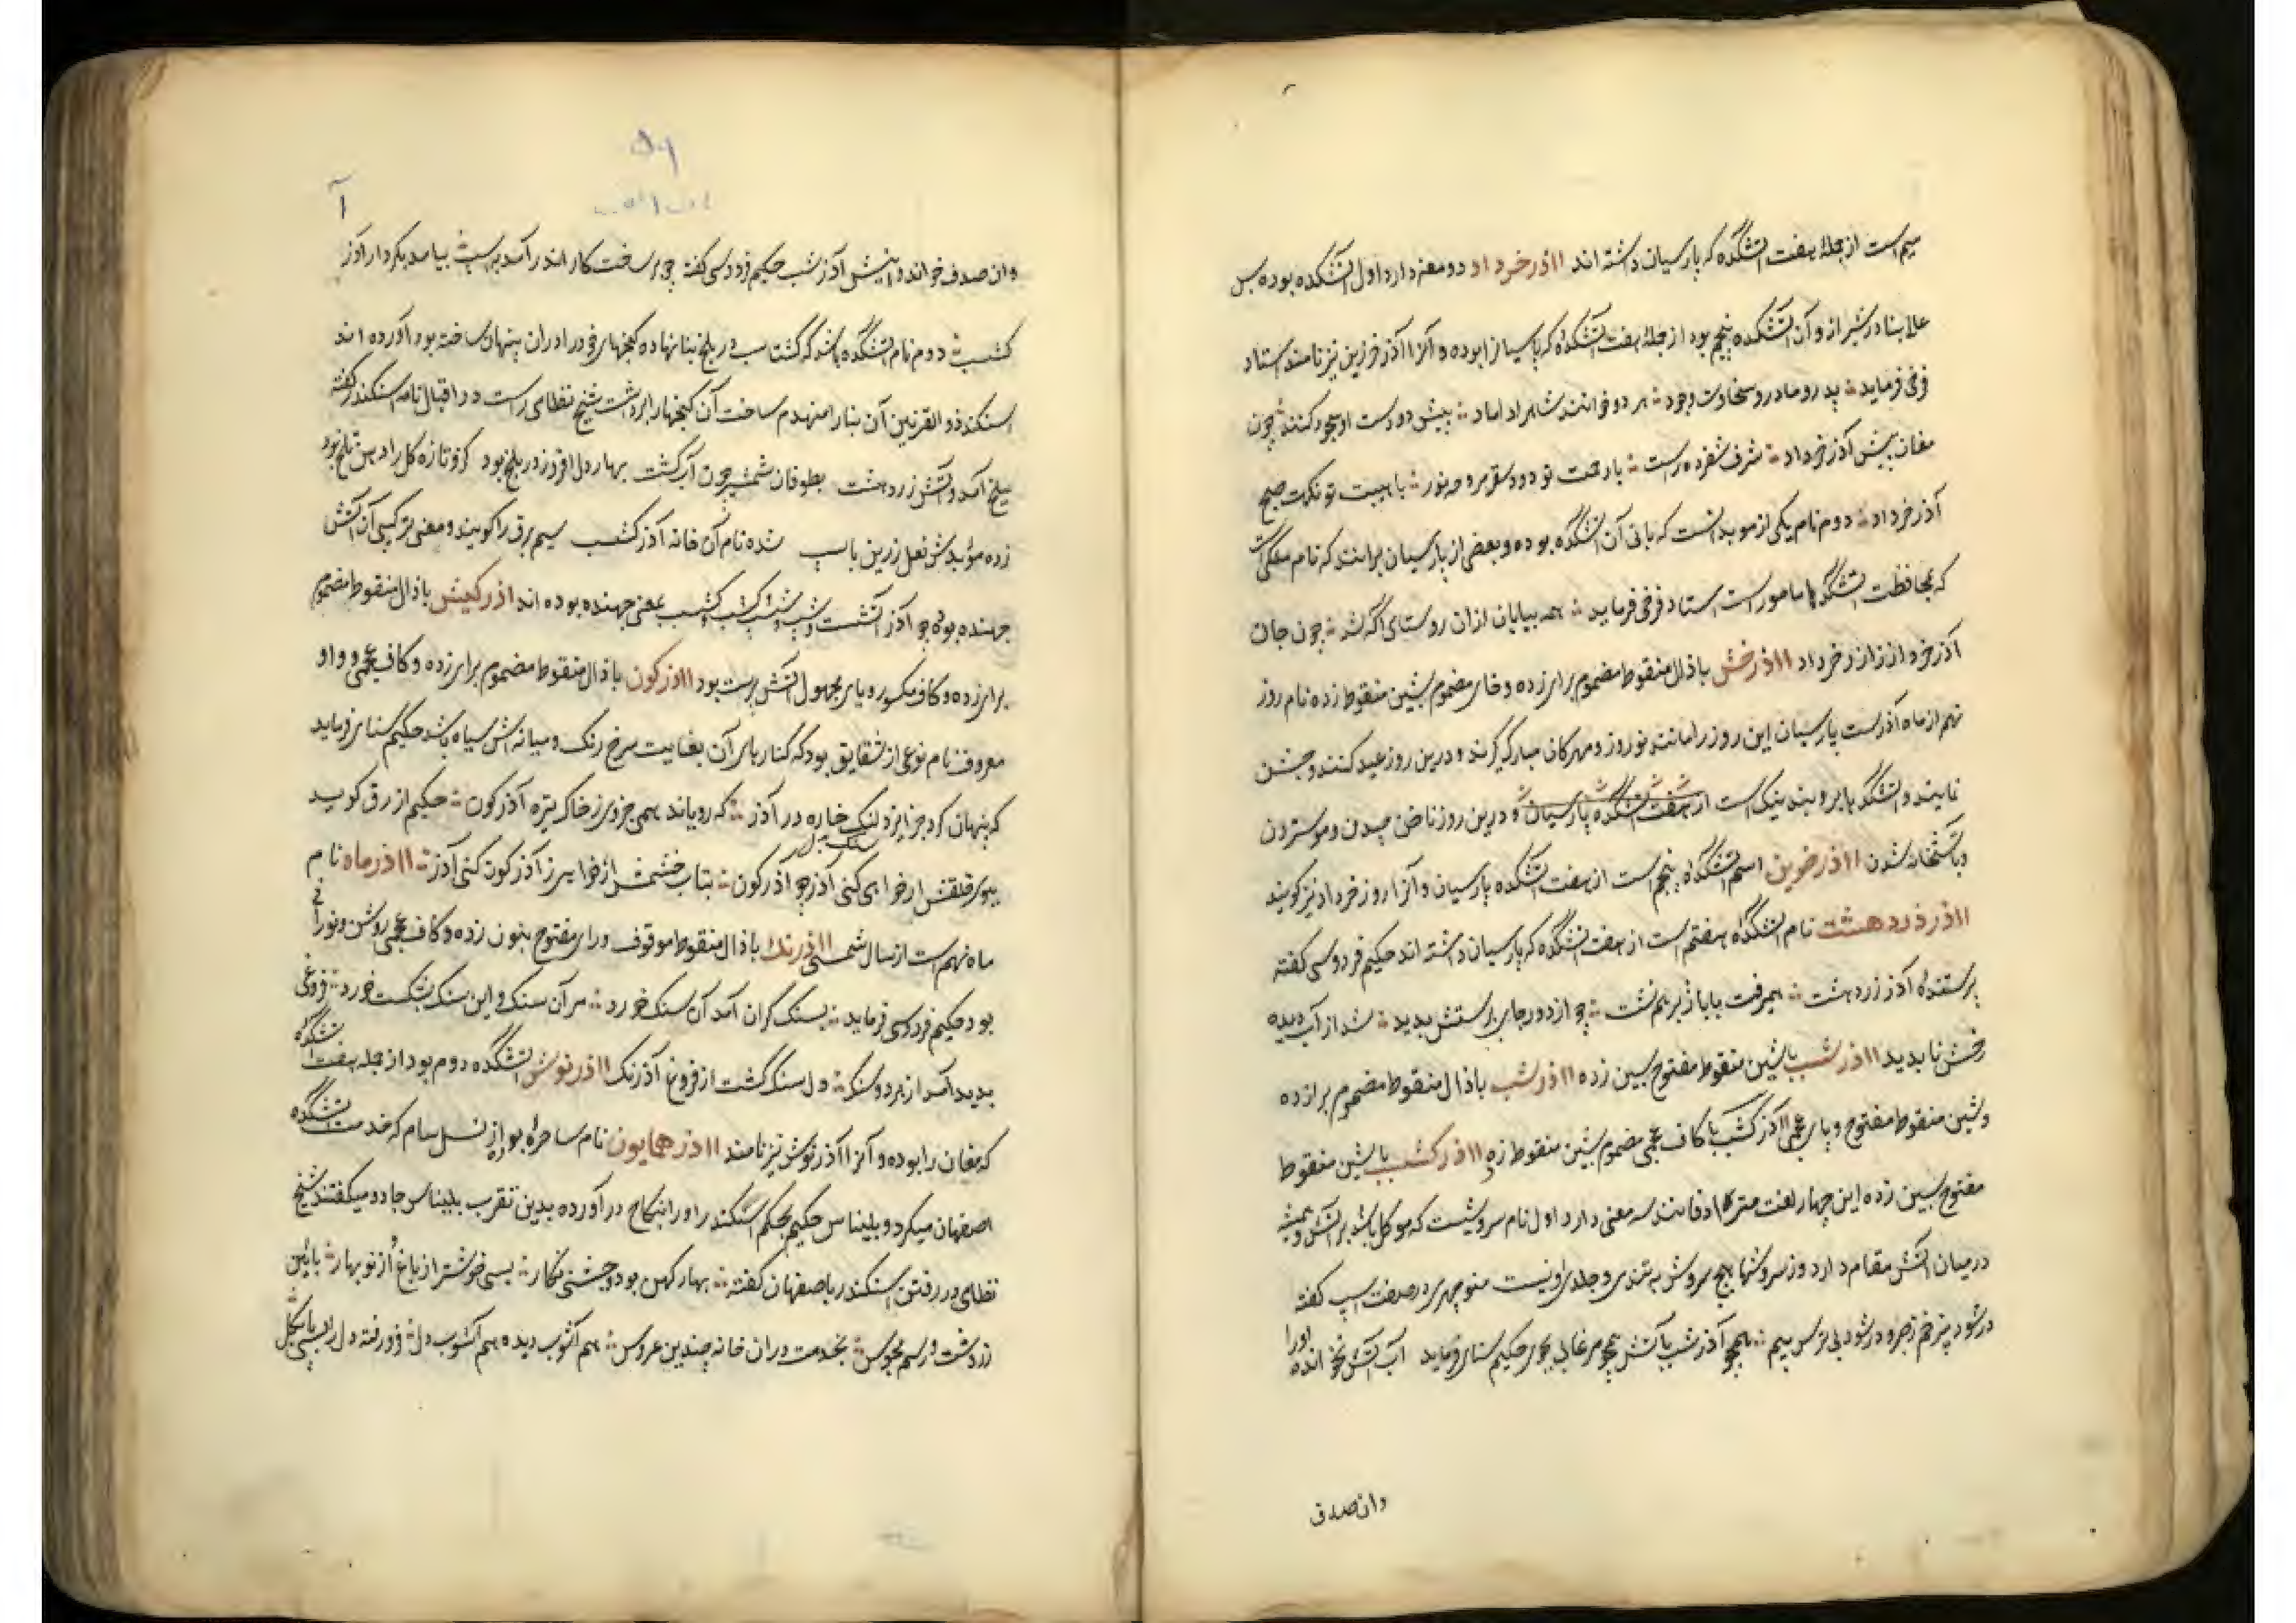 سیم است از جملهٔ هفت آتشکده که پارسیان داشته اند ااذرخرداد دو معنی دارد اول آتشکده بوده بس
عالی بنا در شیراز و آن آتشکده پنجم بود از جملهٔ هفت آتشکده که پارسیانرا بوده و آنرا آذر خرین نیز نامند استاد
فرخی فرماید پدر و مادر و سخاوت وجود هر دو خوانند شاه را داماد پیش دو دست او سجود کنند چون
مغان پیش آذرخرداد شرف شفروه راست با رحمت تو دود سقر مروحه نور با هیبت تو نکهت صبح
آذر خرداد دوم نام یکی از موبدانست که بانی آن آتشکده بوده و بعضی از پارسیان برانند که نام ملکی است
که بمحافظت آتشکدها مامور است استاد فرخی فرماید همه بیابان ازان روستای آگه شد چون جان
آذر خرداد ااذرخش با ذال منقوط مضموم برای زده و خای مضموم بشین منقوط زده نام روز
نهم از ماه آذر است پارسیان این روز را مانند نوروز و مهرکان مبارک گیرند و درین روز عید کنند و جشن
نمایند و آتشکدها بروبند نیک است از هفت آتشکده پارسیان و درین روز ناخن چیدن و مو ستردن
و باتشخانه شدن ااذرخوین اسم آتشکدهٔ پنجم است از هفت آتشکده پارسیان و آنرا روز خرداد نیز کویند
ااذرزردهشت نام آتشکدهٔ هفتم است از هفت آتشکده که پارسیان داشته اند حکیم فردوسی کفته
پرستندهٔ آذر زردهشت همی رفت با باژ برسم بمشت چو از دور جای پرستش بدید شد از آب دیده
رخش ناپدید ااذرشسب باشین منقوط مفتوح بسین زده ااذرشب با ذال منقوط مضموم برا زده
و شین منقوط مفتوح و بای عجمی ااذرکشب با کاف عجمی مضموم بشین منقوط زده ااذرکشسب با شین منقوط
مفتوح بسین زده این چهار لغت مترادفانند سه معنی دارد اول نام سروشیست که موکل باشد بر آتش و همیشه
درمیان آتش مقام دارد و ز سروشها هیچ سروش به تندی و جلدی او نیست منوچهری در صفت اسپ کفته
همچو آذرشب بآتش همچو مرغابی بجوی حکیم سنایی فرماید آب آتش نخوانده اورا
وان صدف
آ
وان صدف خوانده و اینش آذرشب حکیم فردوسی کفته چو بر ساخت کار اندر آمد به اسپ بیامد بکردار آذر
کشسب دوم نام آتشکده باشد که گشتاسب در بلخ بنا نهاده کنجهای خودرا دران پنهان ساخته بود آورده اند
اسکندر ذوالقرنین آن بنارا منهدم ساخت آن کنجهارا برداشت شیخ نظامی راست در اقبال نامه اسکندر کفته
ببلخ آمد و آتش زردهشت بطوفان شمشیر چون آب کشت بهار دل افروز در بلخ بود کزو تازه کل را دهن تلخ بود
زده موبدش نعل زرین باسپ شده نام آن خانه آذرکشسب سیم برق را کویند و معنی ترکیبی آن آتش
جهنده بود چو آذر آتشست و شسب و شب و کشب و کشسب بمعنی جهنده بوده اند اذرکیش با ذال منقوط مضموم
برای زده و کاف مکسور و یای مجهول آتش پرست بود ااذرکون با ذال منقوط مضموم برای زده و کاف عجمی و واو
معروف نام نوعی از شقایق بود که کنارهای آن بغایت سرخ رنک و میانه اش سیاه باشد حکیم سنایی فرماید
که پنهان کرد جز ایزد بسنک خاره در آذر که رویاند همی جز وی ز خاک تیره آذرکون حکیم ازرقی کوید
ار خواهی کنی آذر چو آذرکون بتاب خشمش ار خواهی ز آذرکون کنی آذر ااذرماه نام
ماه نهم است از سال شمسی ااذرنک با ذال منقوط موقوف و رای مفتوح بنون زده و کاف عجمی روشن و نورانی
بود حکیم فردوسی فرماید بسنک کران آمد آن سنک خورد مر آن سنک و این سنک بشکست خورد فروغی
پدید آمد از هر دو سنک دل سنک کشت از فروغ آذرنک ااذرنوش آتشکده دوم بود از جمله هفت آتشکده
که مغان را بوده و آنرا آذر نوش نیز نامند ااذرهمایون نام ساحره بود از نسل سام که خدمت آتشکده
اصفهان میکرد و بلیناس حکیم بحکم اسکندر اورا بنکاح درآورده بدین تقرب بلیناس جادو میکفتند شیخ
نظامی در رفتن اسکندر باصفهان کفته بهار کهن بود و چشنی نکار بسی خوشتر از باغ از نوبهار بایین
زردشت و رسم مجوس بخدمت دران خانه چندین عروس هم آشوب دیده هم آشوب دل فرو رفته دل را بسی پا بکل